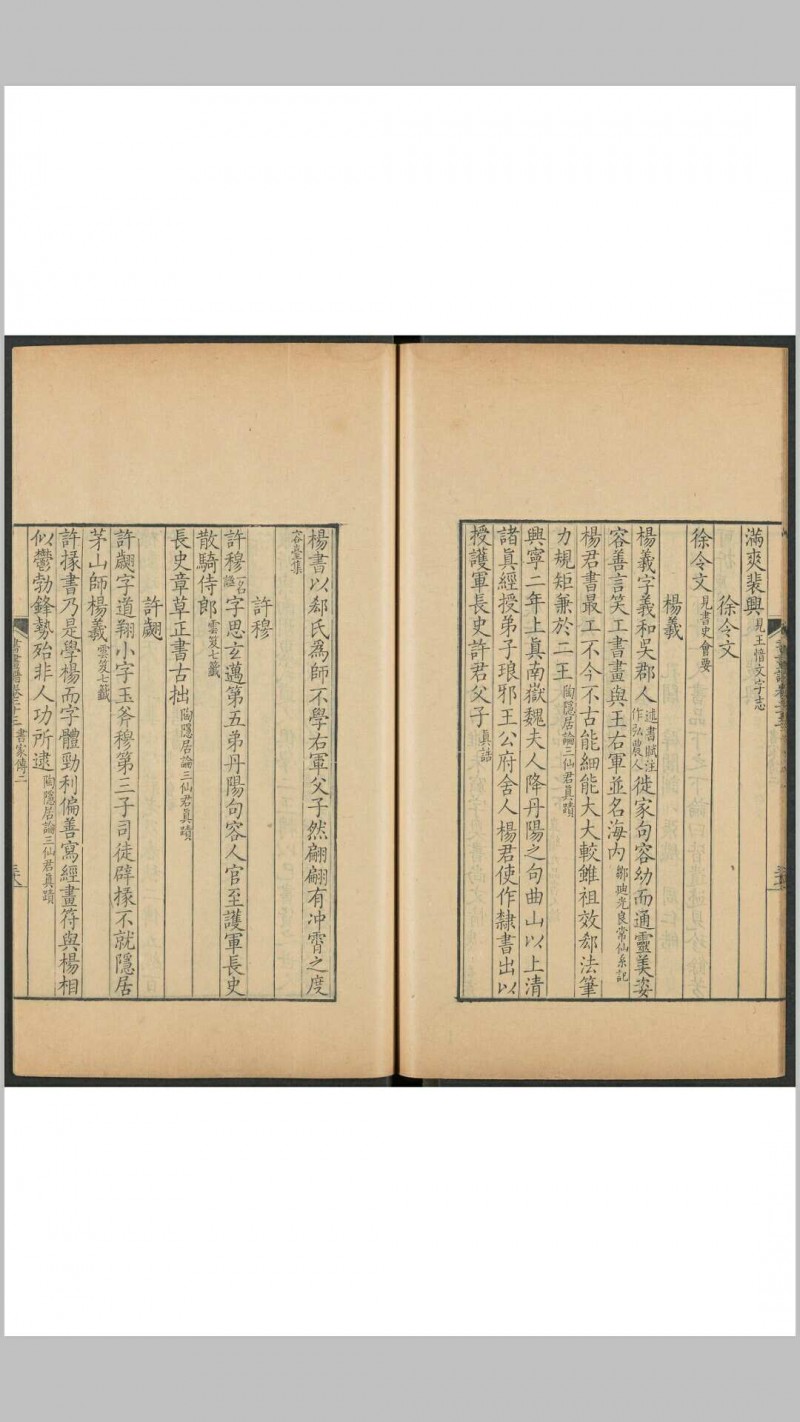 滿爽裴興見王愔文字志
徐令文
徐令文見書史會要
楊羲
楊羲字羲和吳郡人述書賦注作弘農人徙家句容幼而通靈美姿
容善言笑工書畫與王右軍並名海內鄒迪光良常仙系記
楊君書最工不今不古能細能大大較雖祖效郄法筆
力規矩兼於二王陶隱居論三仙君真蹟
興寧二年上真南嶽魏夫人降丹陽之句曲山以上清
諸真經授弟子琅邪王公府舍人楊君使作隸書出以
授護軍長史許君父子真誥
楊書以郄氏為師不學右軍父子然翩翩有冲霄之度
集
許穆
許穆一名謐字思玄邁第五弟丹陽句容人官至護軍長史
散騎侍郎雲笈七籤
長史章草正書古拙陶隱居論三仙君真蹟
許翽
許翽字道翔小字玉斧穆第三子司徒辟掾不就隱居
茅山師楊羲雲笈七籤
許掾書乃是學楊而字體勁利偏善寫經畫符與楊相
似鬱勃鋒勢殆非人功所逮陶隱居論三仙君真蹟
書畫譜卷二十三 書家傳二